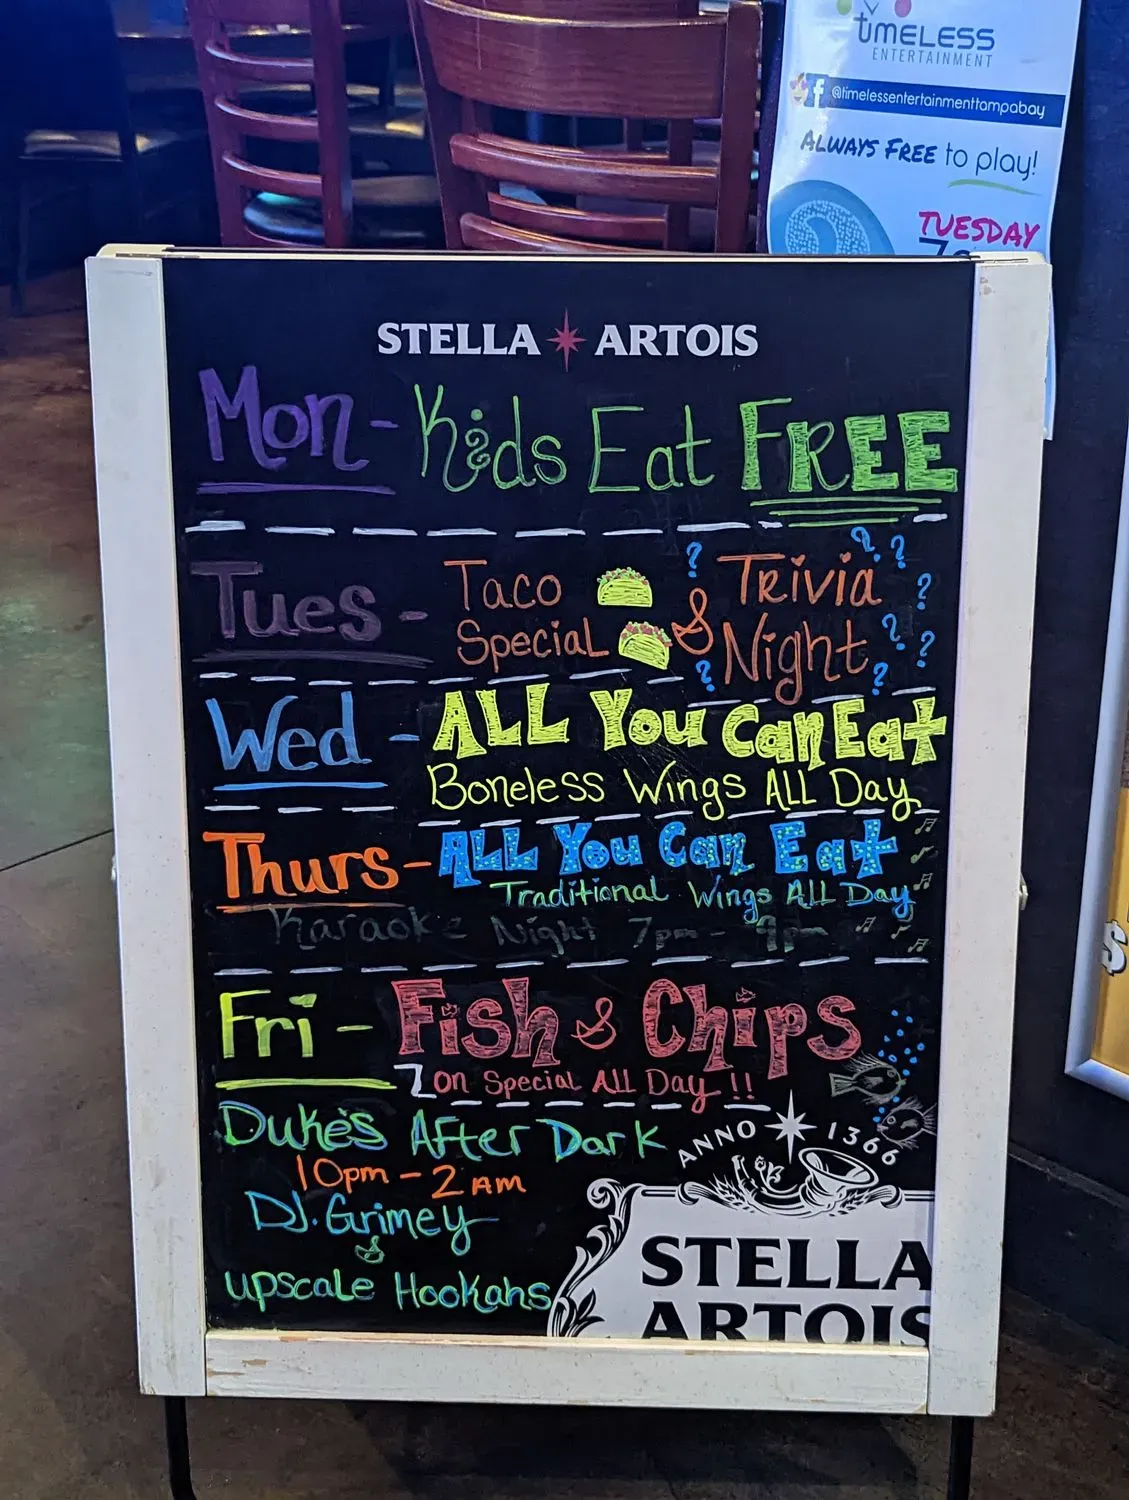 tiMELESS
ENTERTAINMENT
f @timelessentertainmenttampabay
ALWAYS FREE to play!
TUESDAY
STELLA ARTOIS
Mon - Kids Eat FREE
Tues - Taco Special & Trivia Night
Wed - ALL You Can Eat
Boneless Wings ALL Day
Thurs - ALL You Can Eat
Traditional Wings ALL Day
Karaoke Night 7pm - 9pm
Fri - Fish & Chips
on Special ALL Day !!
Duke's After Dark
10pm - 2 AM
DJ. Grimey
&
upscale Hookahs
ANNO 1366
STELLA
ARTOIS
$